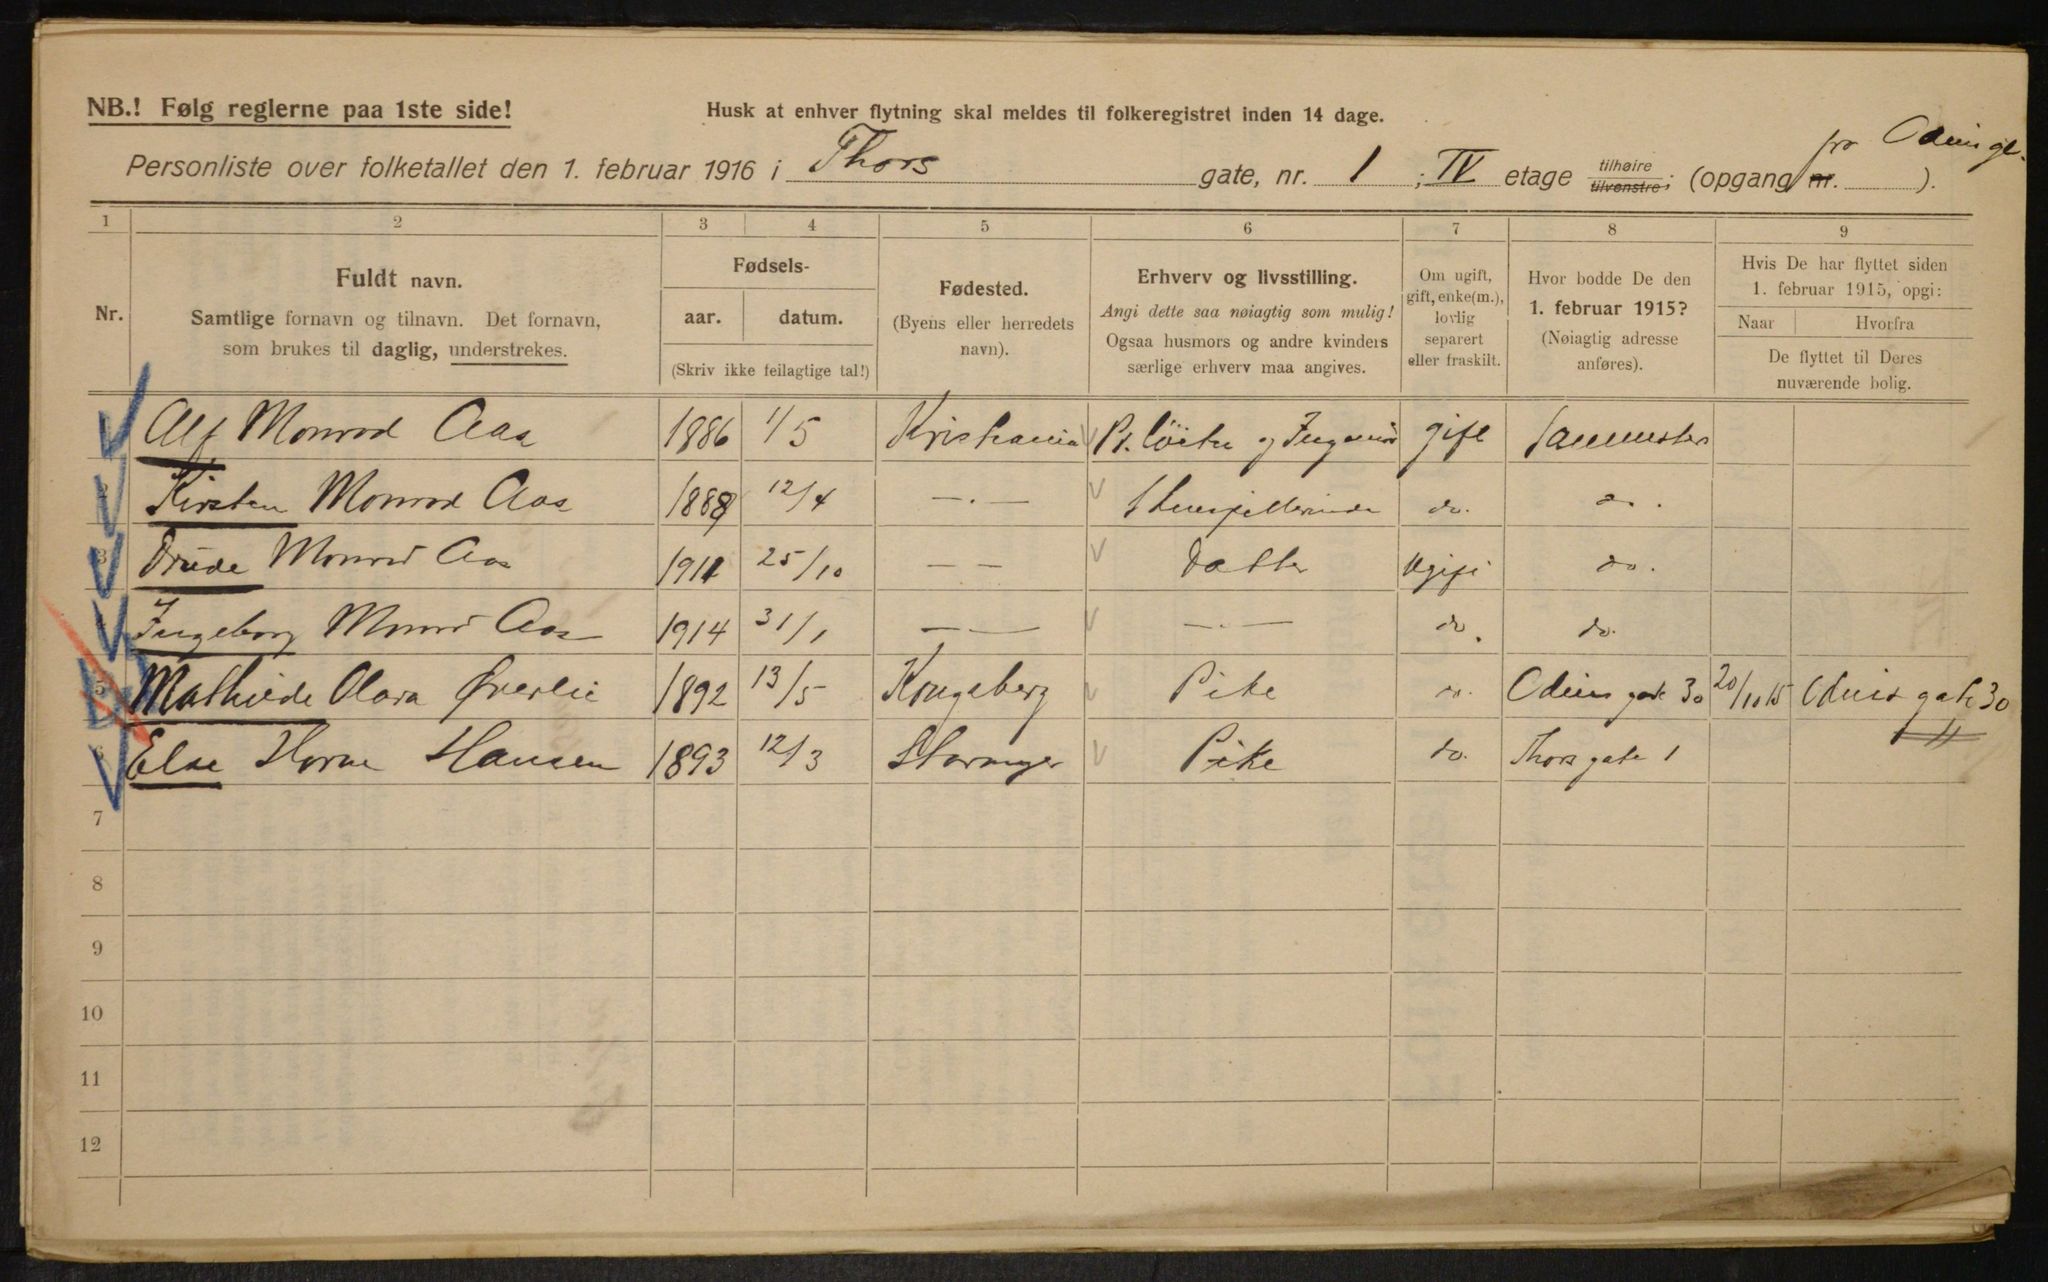 NB.! Følg reglerne paa 1ste side!
Husk at enhver flytning skal meldes til folkeregistret inden 14 dage.
fra Odinsgt.
Personliste over folketallet den 1. februar 1916 i Thors gate, nr. 1 ; IV etage tilhøire tilvenstre; (opgang nr. ).
1 2 3 4 5 6 7 8 9
Nr.
Fuldt navn.
Samtlige fornavn og tilnavn. Det fornavn,
som brukes til daglig, understrekes.
Fødsels-
aar. datum.
(Skriv ikke feilagtige tal!)
Fødested.
(Byens eller herredets
navn).
Erhverv og livsstilling.
Angi dette saa nøiagtig som mulig!
Ogsaa husmors og andre kvinders
særlige erhverv maa angives.
Om ugift,
gift, enke(m.),
lovlig
separert
eller fraskilt.
Hvor bodde De den
1. februar 1915?
(Nøiagtig adresse
anføres).
Hvis De har flyttet siden
1. februar 1915, opgi:
Naar Hvorfra
De flyttet til Deres
nuværende bolig.
Alf Monrad Aas 1886 1/5 Kristiania Pr. løitn og Ingeniør gift Sammesteds
Kirsten Monrad Aas 1889 12/4 — . — Skuespillerinde do. do.
3 Drude Monrad Aas 1911 25/10 — — Datter Ugift do.
Ingeborg Monrad Aas 1914 31/1 — — — . — do. do.
5 Mathilde Olava Øverlie 1892 13/5 Kongsberg Pike do. Odins gate 30 20/10 15 Odins gate 30
6 Else Horne Hansen 1893 12/3 Stavanger Pike do. Thors gate 1
7
8
9
10
11
12